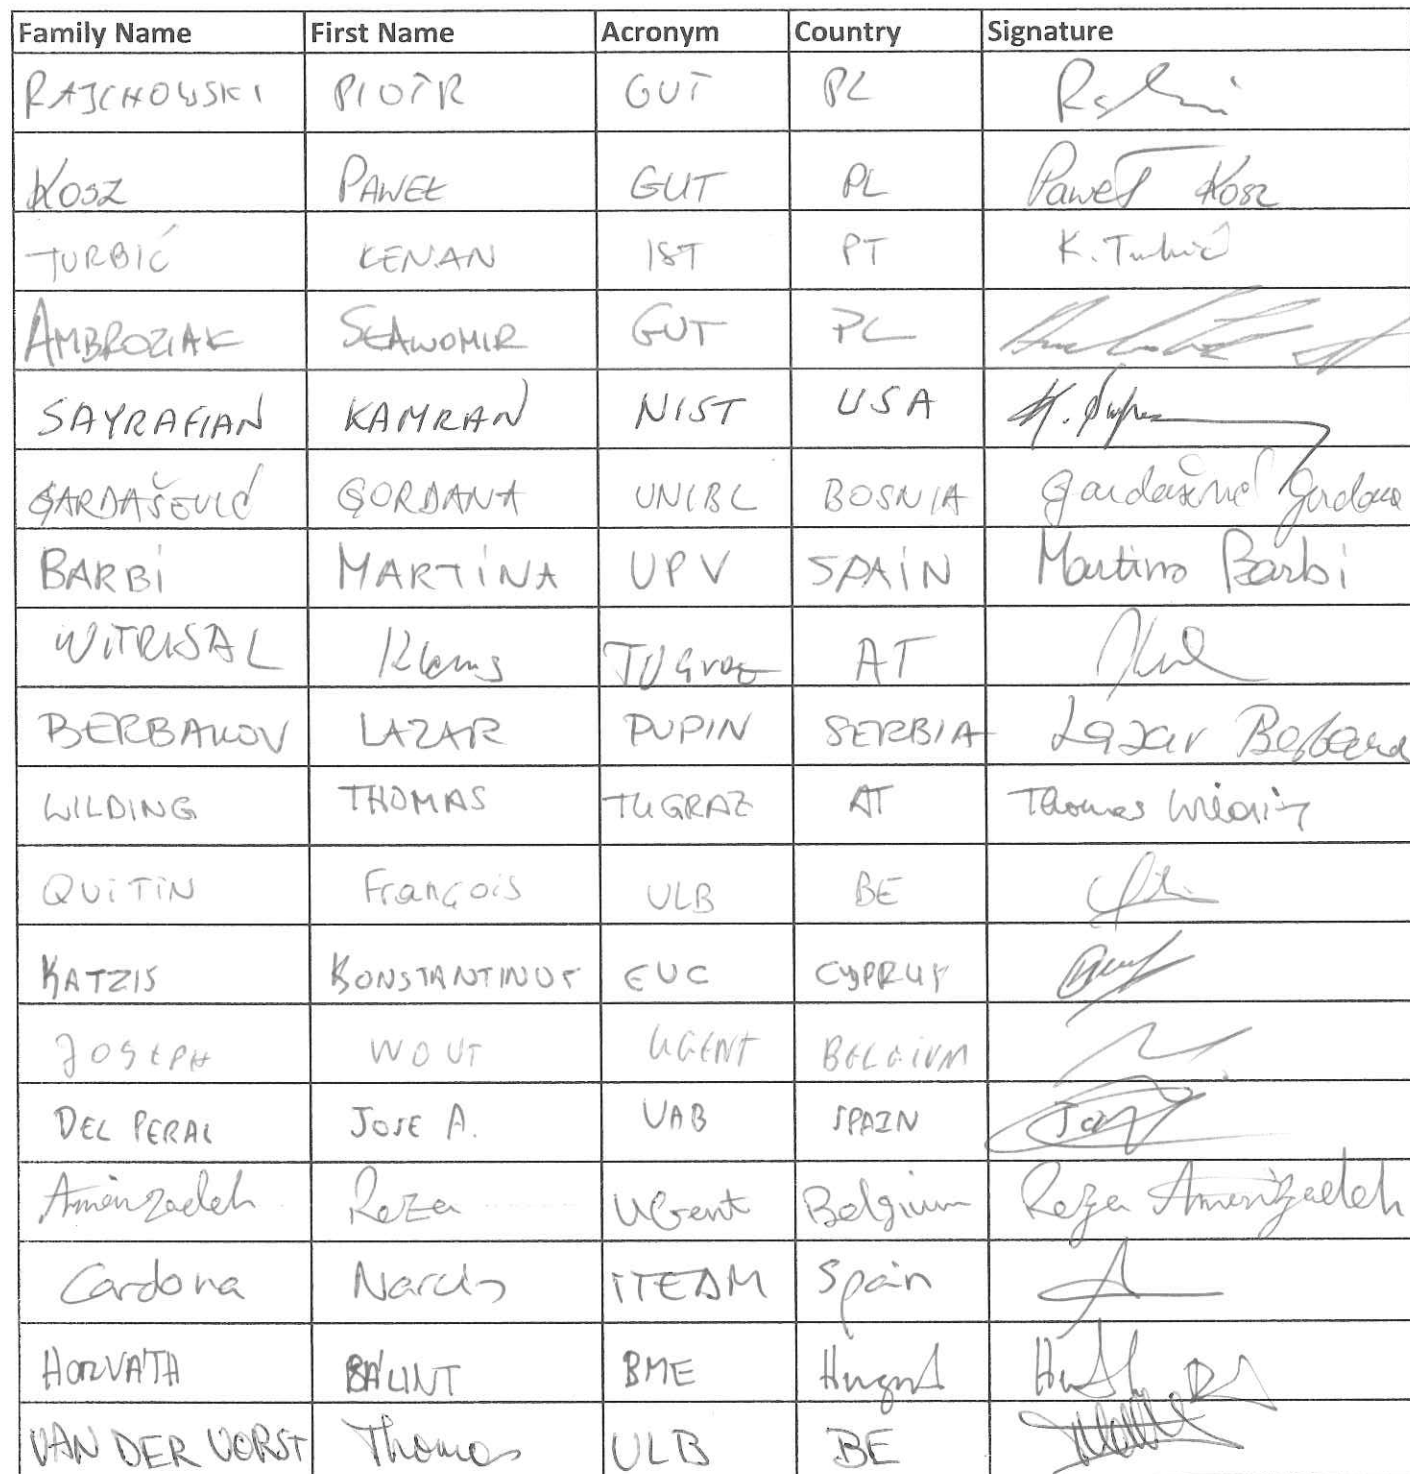 Family Name First Name Acronym Country Signature
RAJCHOWSKI PIOTR GUT PL
KOSZ PAWEŁ GUT PL Paweł Kosz
TURBIĆ KENAN IST PT K. Turbić
AMBROZIAK SŁAWOMIR GUT PL
SAYRAFIAN KAMRAN NIST USA
GARDAŠEVIĆ GORDANA UNIBL BOSNIA Gardašević Gordana
BARBI MARTINA UPV SPAIN Martina Barbi
WITRISAL Klaus TU Graz AT
BERBAKOV LAZAR PUPIN SERBIA Lazar
WILDING THOMAS TUGRAZ AT Thomas Wilding
QUITIN François ULB BE
KATZIS KONSTANTINOS EUC CYPRUS
JOSEPH WOUT UGENT BELGIUM
DEL PERAL JOSE A. UAB SPAIN
Aminzadeh Reza UGent Belgium Reza Aminzadeh
Cardona Narcis iTEAM Spain
HORVÁTH BÁLINT BME
VAN DER VORST Thomas ULB BE